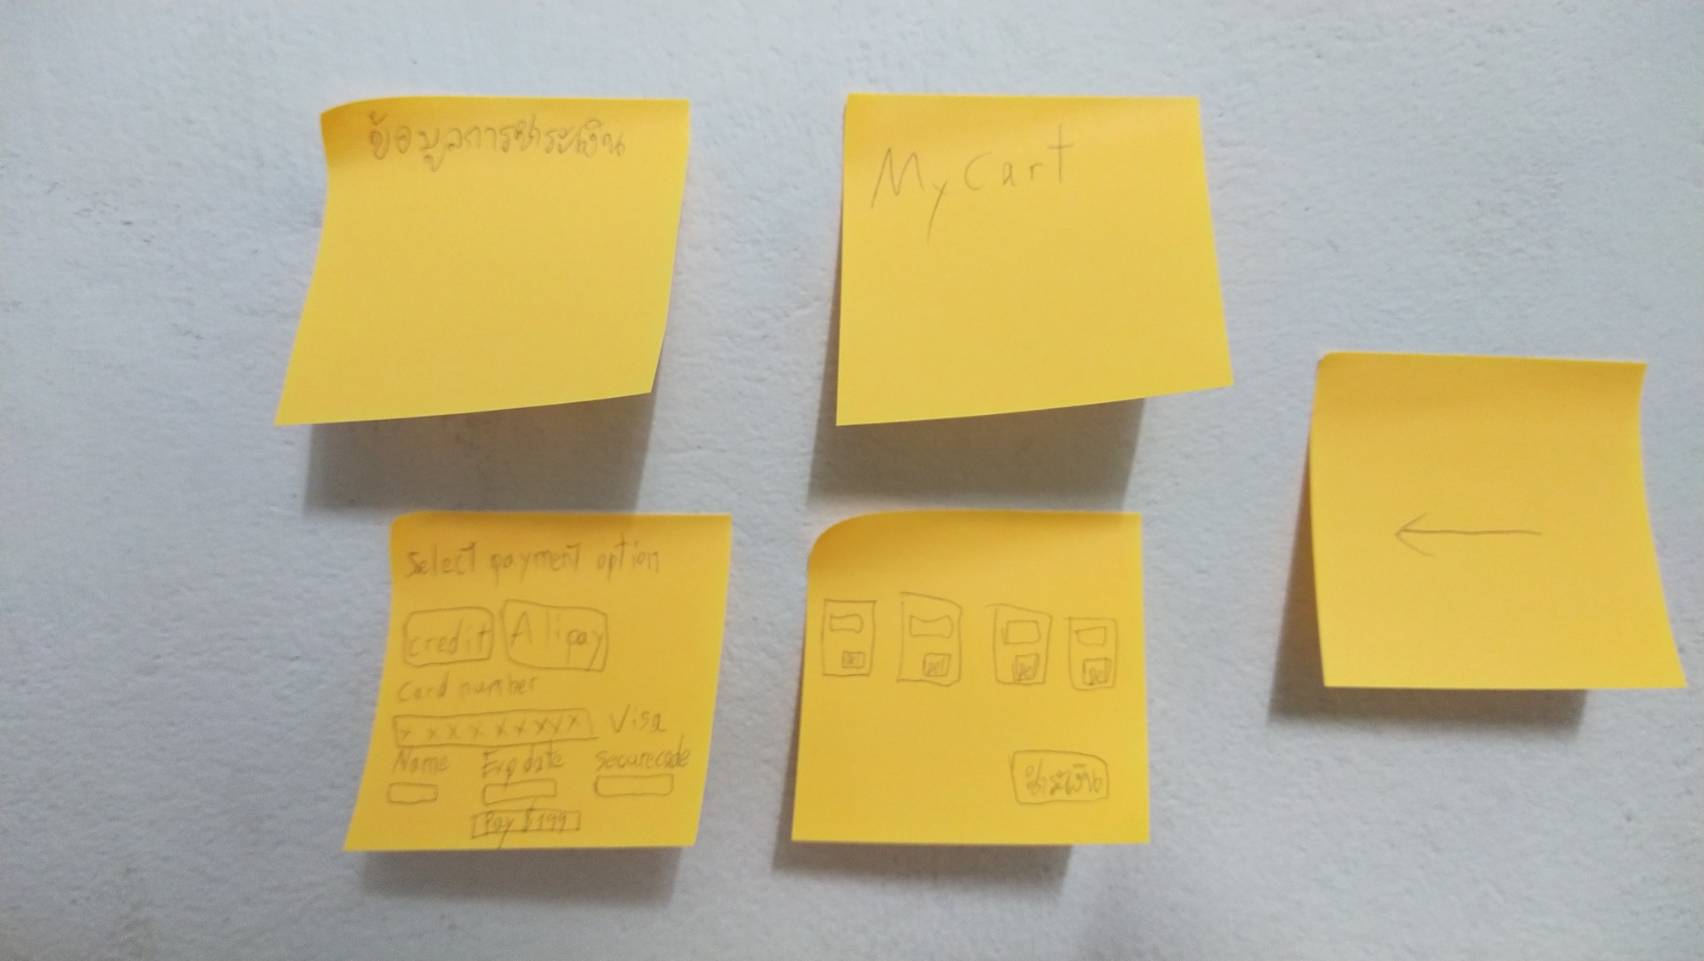 ข้อมูลการชำระเงิน
My Cart
Select payment option
credit Alipay
Card number
xxxxxxxxx Visa
Name Exp date Securecode
Pay $199
Del Del Del Del
ชำระเงิน